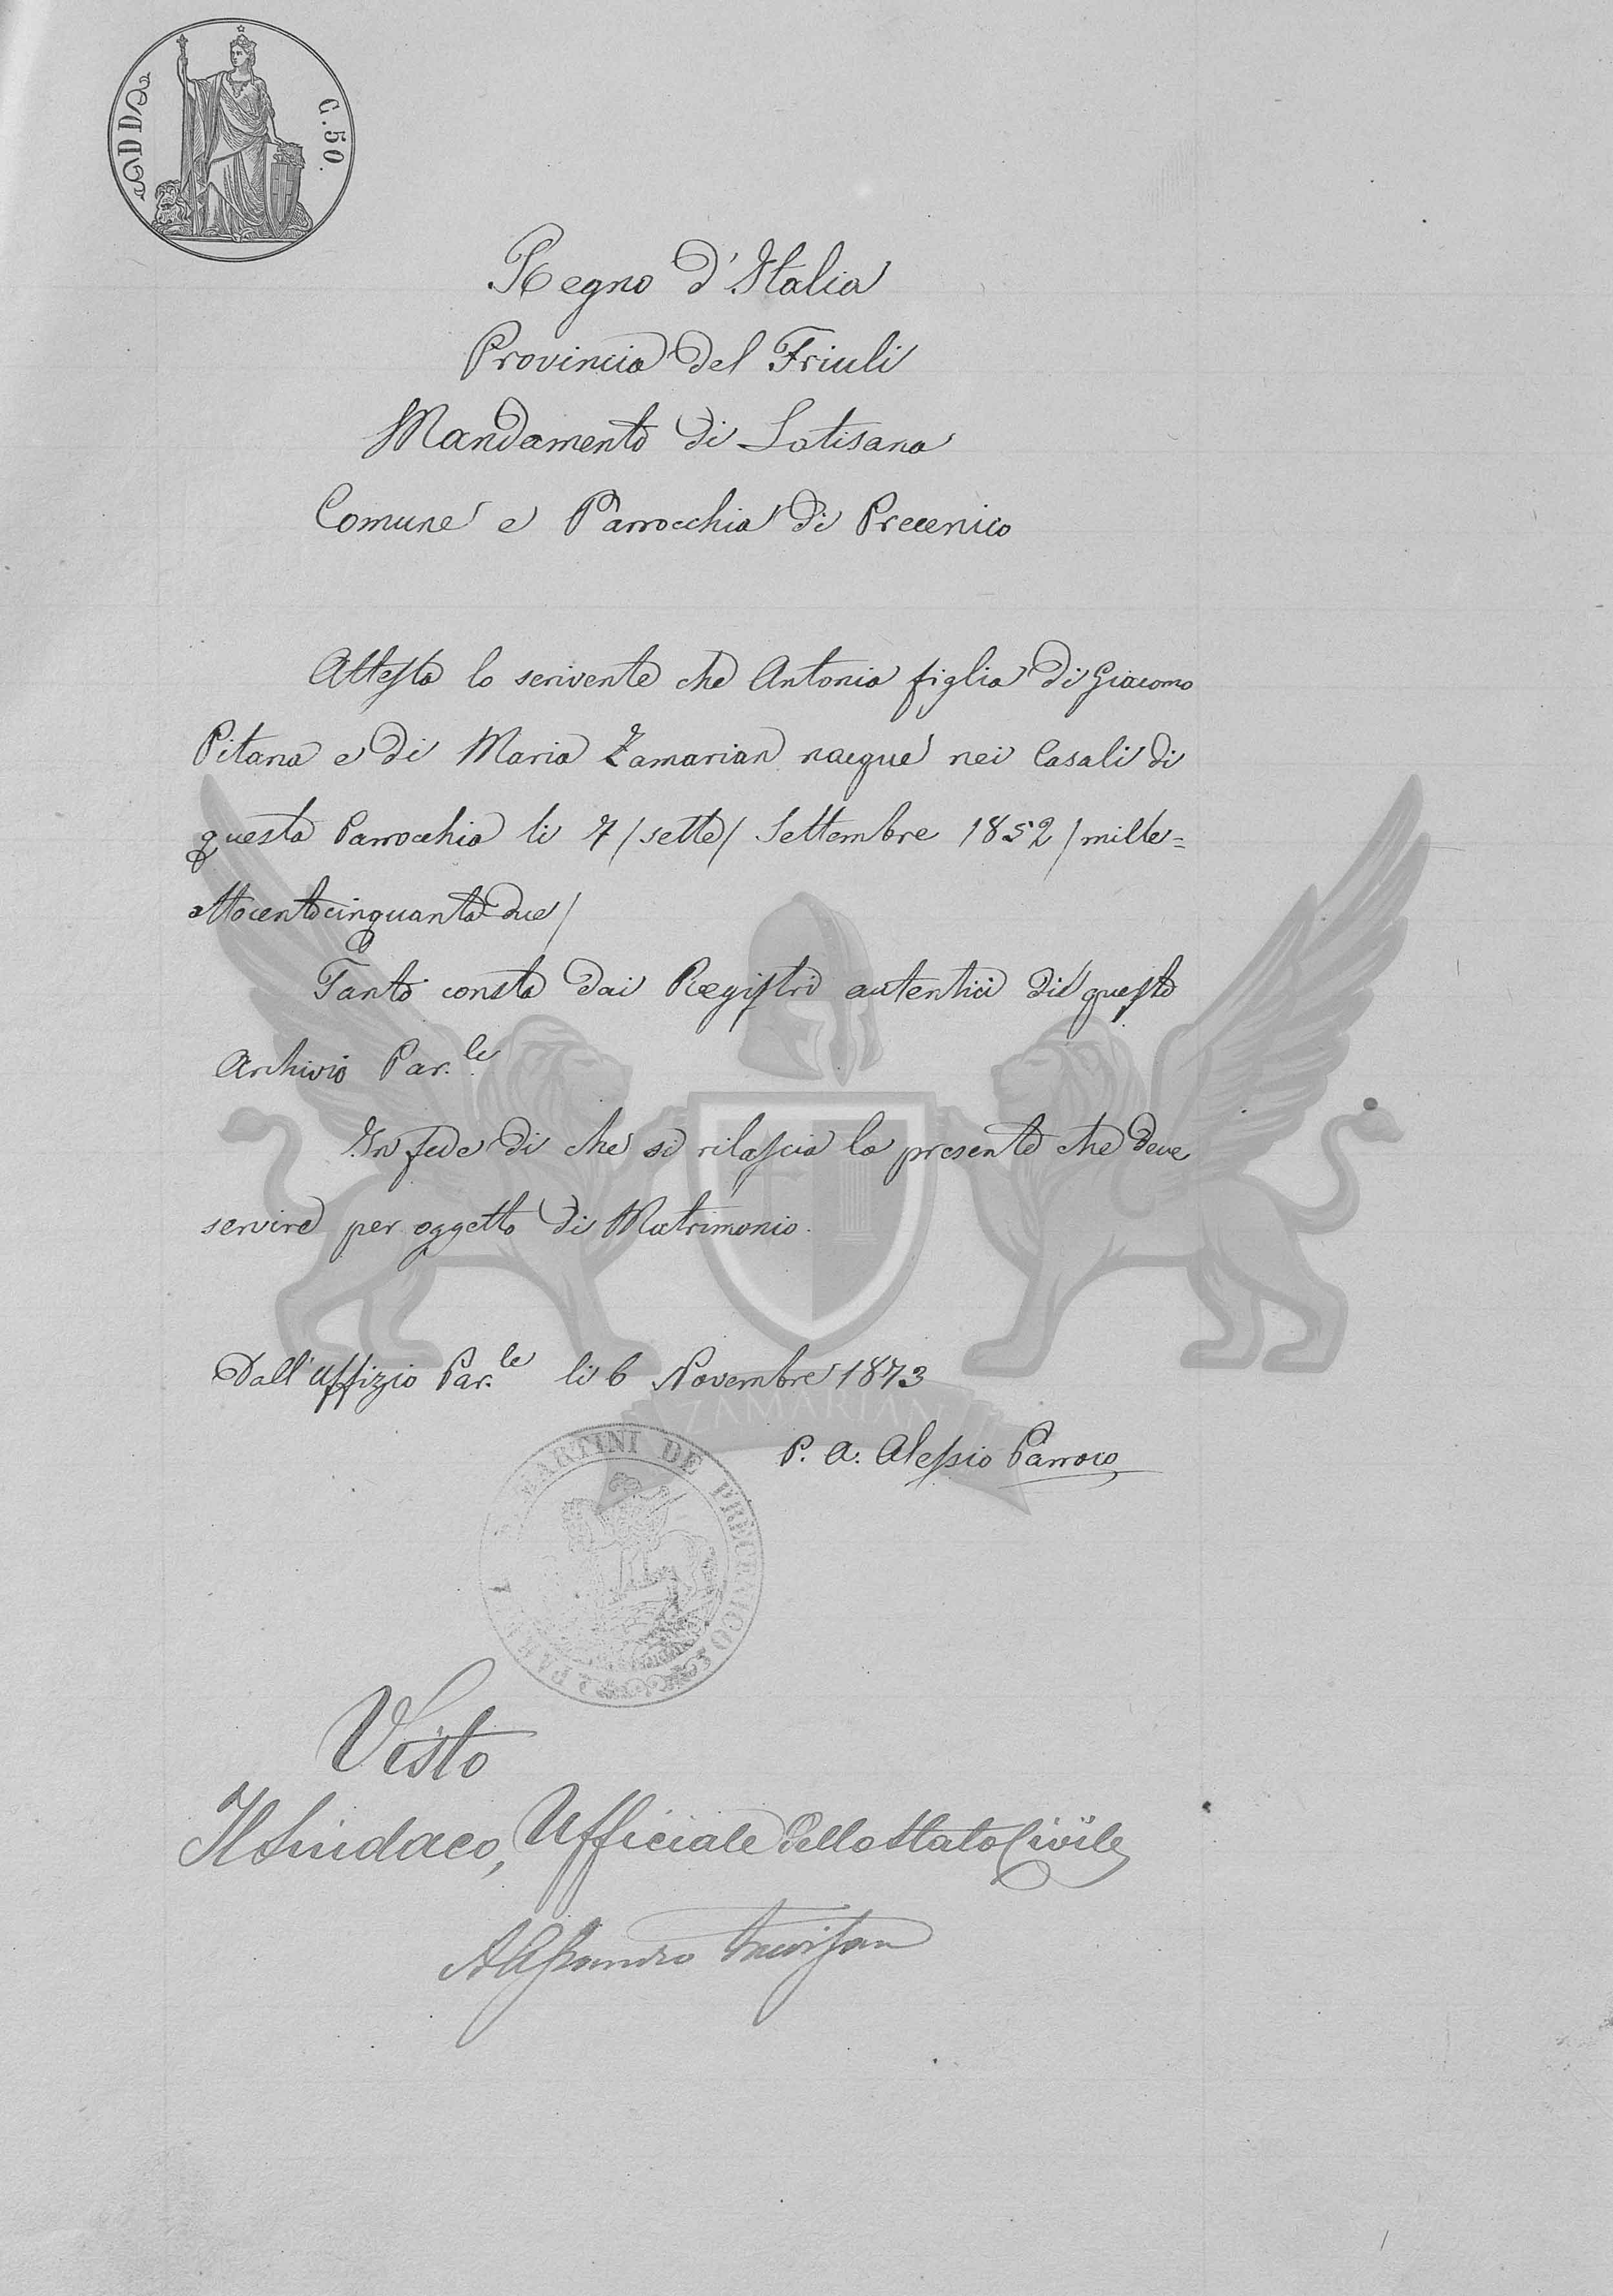 DD
C. 50.
Regno d'Italia
Provincia del Friuli
Mandamento di Latisana
Comune e Parrocchia di Precenico
Attesta lo scrivente che Antonia figlia di Giacomo
Pitana e di Maria Zamarian nacque nei Casali di
questa Parrocchia li 7 /sette/ Settembre 1852 /mille=
ottocentocinquantadue/
Tanto consta dai Registri autentici di questo
Archivio Par.le
In fede di che si rilascia la presente che deve
servire per oggetto di Matrimonio.
Dall'Uffizio Par.le li 6 Novembre 1873
ZAMARIAN
P. A. Alessio Parroco
MARTINI DE PRECENICO
Visto
Il Sindaco, Ufficiale dello Stato Civile
Alessandro Trevisan